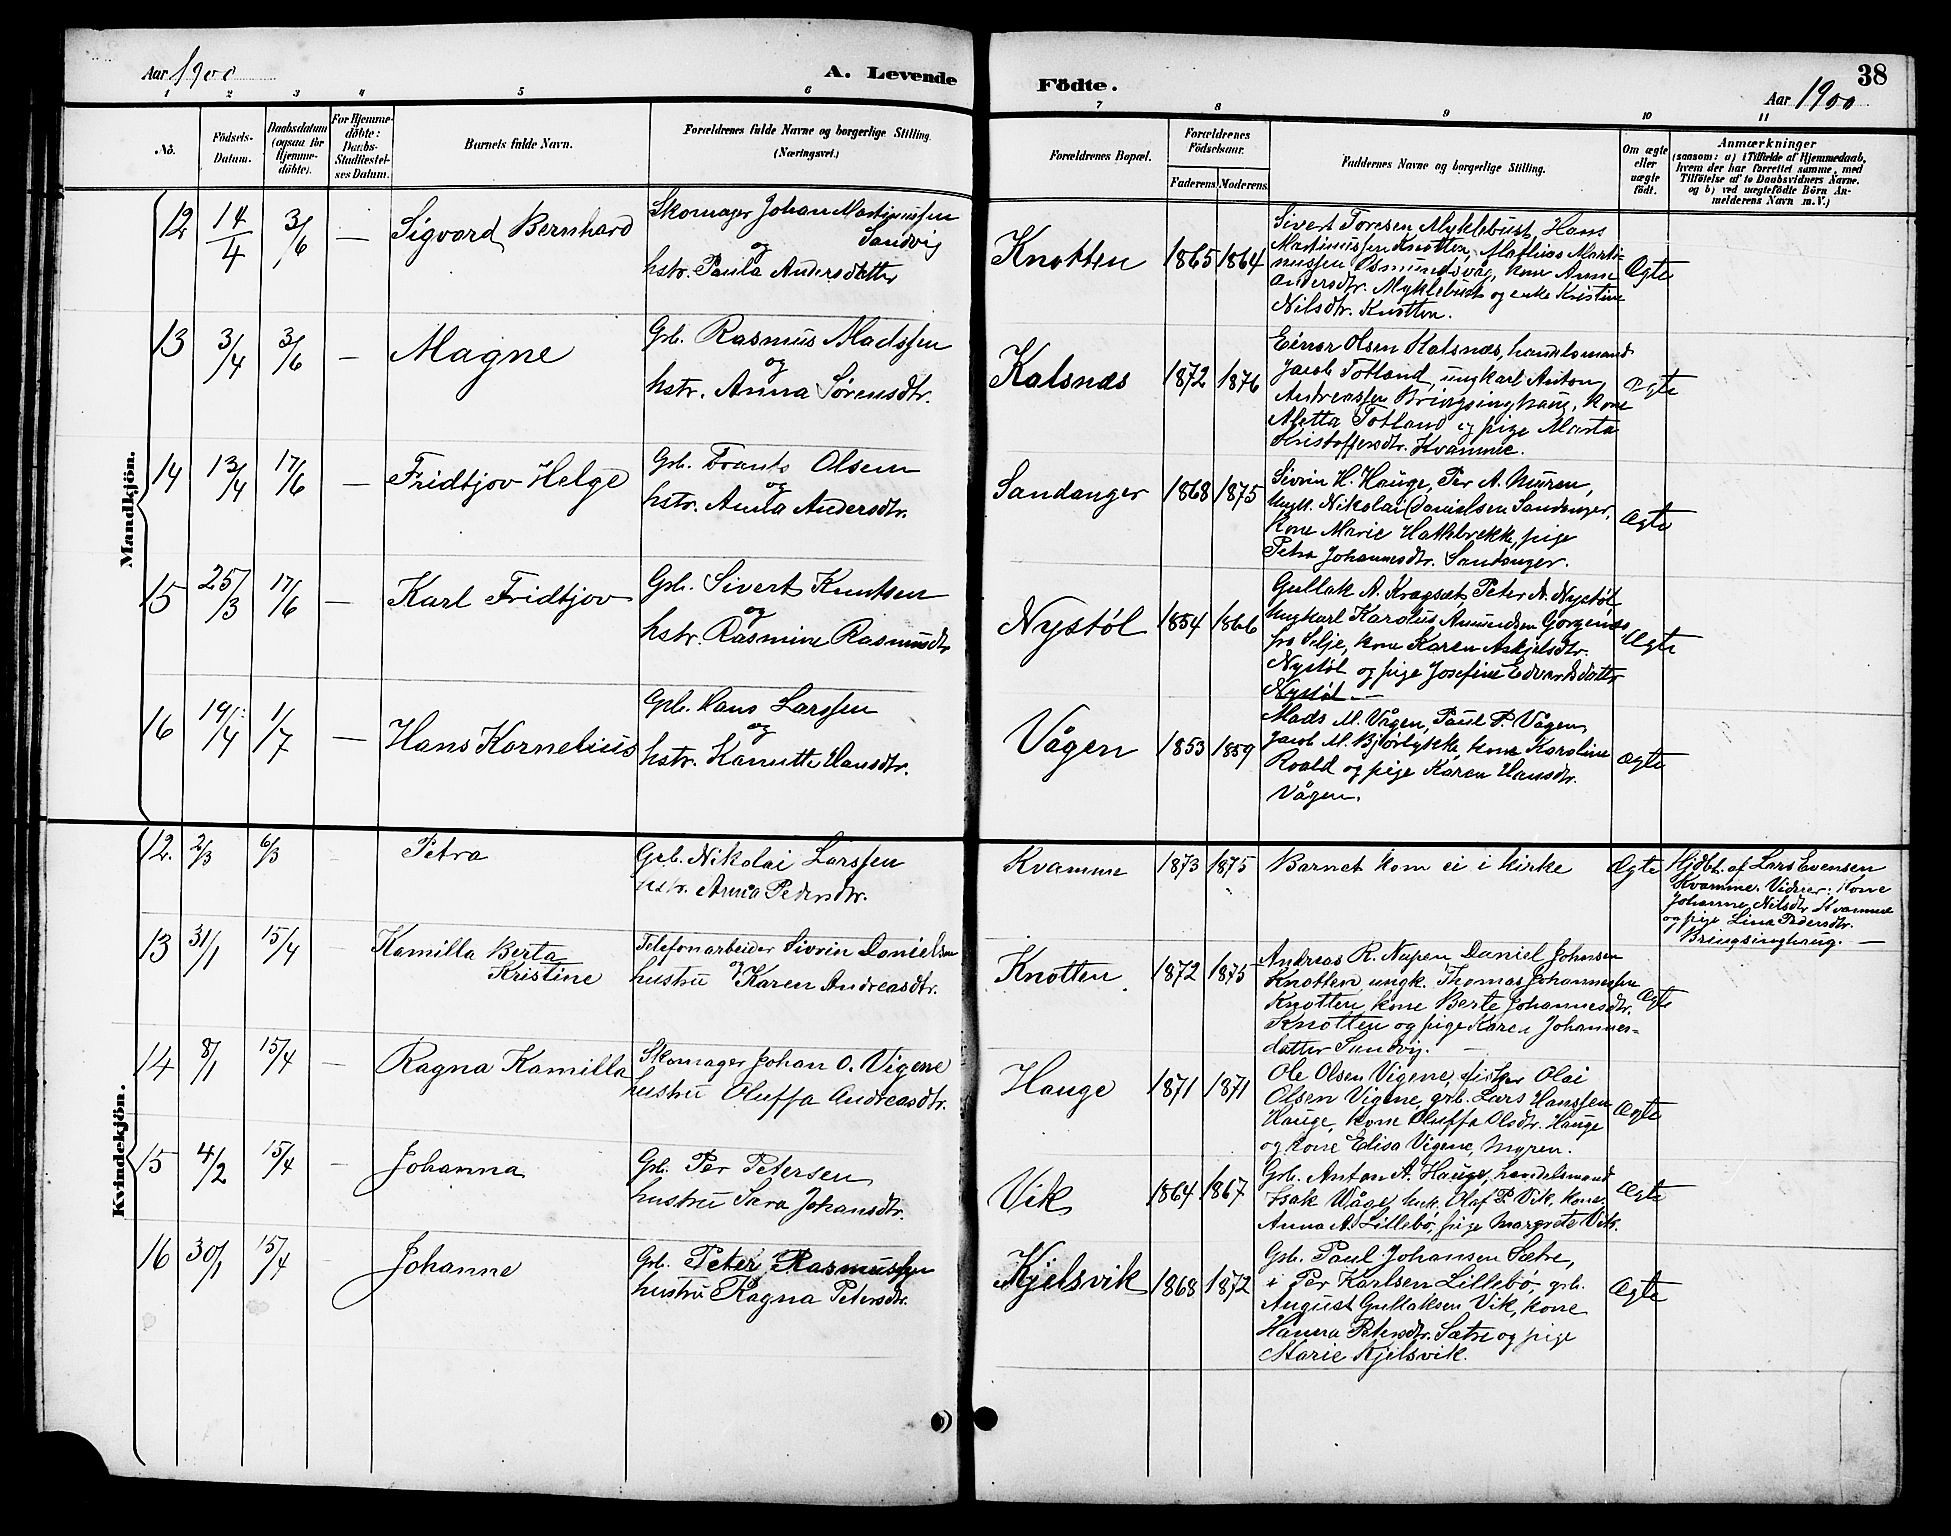 Aar 1900
A. Levende
Födte.
38
Aar 1900
1 2 3 4 5 6 7 8 9 10 11
No.
Födsels-
Datum.
Daabsdatum
(ogsaa for
Hjemme-
döbte).
For Hjemme-
döbte:
Daabs-
Stadfæstel-
ses Datum.
Barnets fulde Navn.
Forældrenes fulde Navne og borgerlige Stilling.
(Næringsvei.)
Forældrenes Bopæl.
Forældrenes
Födselsaar.
Faderens
Moderens
Faddernes Navne og borgerlige Stilling.
Om ægte
eller
uægte
födt.
Anmærkninger
(saasom: a) i Tilfælde af Hjemmedaab,
hvem der har forrettet samme, med
Tilföielse af to Daabsvidners Navne.
og b) ved uægtefödte Börn An-
melderens Navn m. V.)
Mandkjön.
12 14/4 3/6 — Sigvard Bernhard
Skomager Johan Martinussen
og Sandvig
hstr. Paula Andersdatter
Knotten 1865 1864
Sivert Toresen Myklebust, Hans
Martinussen Knotten, Mathias Marti-
nussen Osmundsvåg, kone Anne
Andersdtr. Myklebust og enke Kristine
Nilsdtr. Knotten.
Ægte
13 3/4 3/6 — Magne
Grb. Rasmus Madssen
og
hstr. Anna Sørensdtr.
Kalsnæs 1872 1876
Einar Olsen Kalsnæs, handelsmand
Jacob Totland, ungkarl Anton
Andreassen Bringsinghaug, kone
Aletta Totland og pige Marta
Kristoffersdtr. Kvamme.
Ægte
14 13/4 17/6 — Fridtjov Helge
Grb. Frants Olsen
og
hstr. Anna Andersdtr.
Sandanger 1868 1875
Sivrin H. Hauge, Per A. Muren,
Ungk. Nikolai Danielsen Sandanger,
kone Marie Hakkbrekk, pige
Petra Johannesdtr. Sandanger.
Ægte
15 25/3 17/6 — Karl Fridtjov
Grb. Sivert Knutsen
og
hstr. Rasmine Rasmusdtr
Nystøl 1854 1866
Gullak A. Kragset, Peter N. Nystøl
Ungkarl Karolus Amundsen Gorgenæs
fra Selje, kone Karen Askjelsdtr.
Nystøl og pige Josefine Edvardsdatter
Nystøl —
Ægte
16 19/4 1/7 — Hans Kornelius
Grb. Hans Larssen
og
hstr. Kanutte Hansdtr.
Vågen 1853 1859
Mads M. Vågen, Paul P. Vågen,
Jacob M. Bjørlykke, kone Karoline
Roald og pige Karen Hansdtr.
Vågen.
Ægte
Kvindekjön.
12. 2/3 6/3 Petra
Grb. Nikolai Larssen
hstr. Anna Pedersdtr.
Kvamme 1873 1875 Barnet kom ei i kirke Ægte
Hjdbt. af Lars Evensen
Kvamme. Vidner: Kone
Johanne Nilsdtr Kvamme
og pige Lina Pedersdtr.
Bringsinghaug. —
13 31/1 15/4 Kamilla Berta
Kristine
Telefonarbeider Sivrin Danielsen
og
hustru Karen Andreasdtr.
Knotten 1872 1875
Andreas R. Nupen, Daniel Johansen
Knotten, ungk. Thomas Johannessen
Knotten, kone Berte Johannesdtr.
Knotten og pige Karen Johannes-
datter Sandvig. —
Ægte
14 8/1 15/4 — Ragna Kamilla
Skomager Johan O. Vigene
hustru Oluffa Andreasdtr.
Hauge 1871 1871
Ole Olsen Vigene, fisker Olai
Olsen Vigene, grb. Lars Hanssen
Hauge, kone Oluffa Olsdtr. Hauge
og kone Elisa Vigene, Myren.
Ægte
15 4/2 15/4 — Johanna
Grb. Per Petersen
hustru Sara Johansdtr.
Vik 1864 1867
Grb. Anton A. Hauge, handelsmand
Isak Våge, ungk. Olaf P. Vik, kone
Anna A. Lillebø, pige Margrete Vik.
Ægte
16 30/1 15/4 Johanne
Grb. Peter Rasmussen
hustru Ragna Petersdtr.
Kjelsvik 1868 1872
Grb. Paul Johansen Sætre,
i Per Karlsen Lillebø, grb.
August Gullaksen Vik, kone
Hanna Petersdtr. Sætre og pige
Marie Kjelsvik.
Ægte